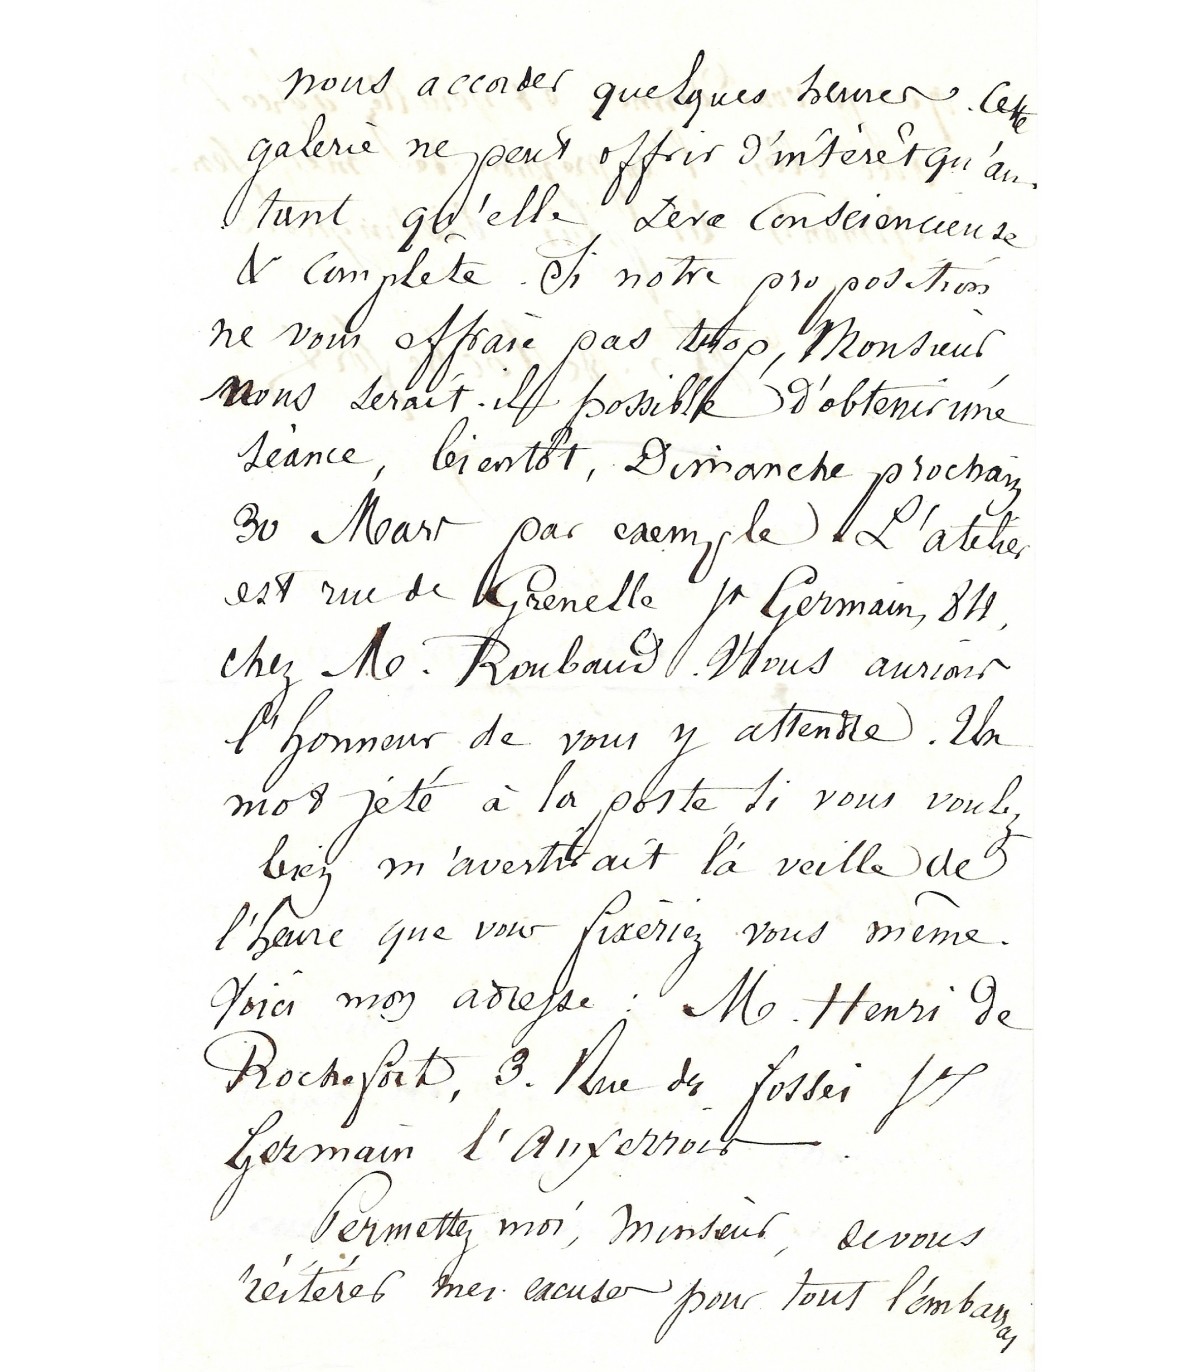 nous accorder quelques heures. Cette
galerie ne peut offrir d'intérêt qu'au-
tant qu'elle sera consciencieuse
& complète. Si notre proposition
ne vous effraie pas trop, Monsieur
nous serait-il possible d'obtenir une
séance, bientôt, Dimanche prochain
30 Mars par exemple. L'atelier
est rue de Grenelle St Germain, 84,
chez M. Roubaud. Nous aurions
l'honneur de vous y attendre. Un
mot jeté à la poste si vous voulez
bien m'avertirait la veille de
l'heure que vous fixeriez vous même.
Voici mon adresse : M. Henri de
Rochefort, 3. Rue des fossés St
Germain l'Auxerrois.
Permettez moi, Monsieur, de vous
réitérer mes excuses pour tout l'embarras